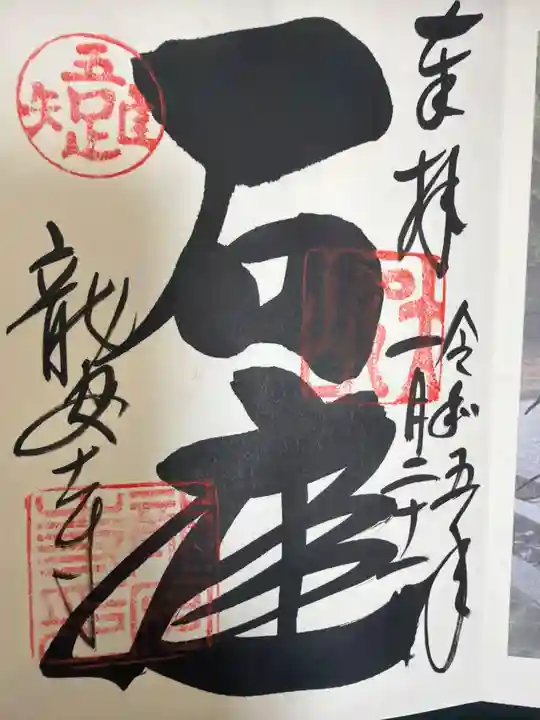 奉拝
令和五年
一月二十一
石庭
龍安寺
吾唯足知